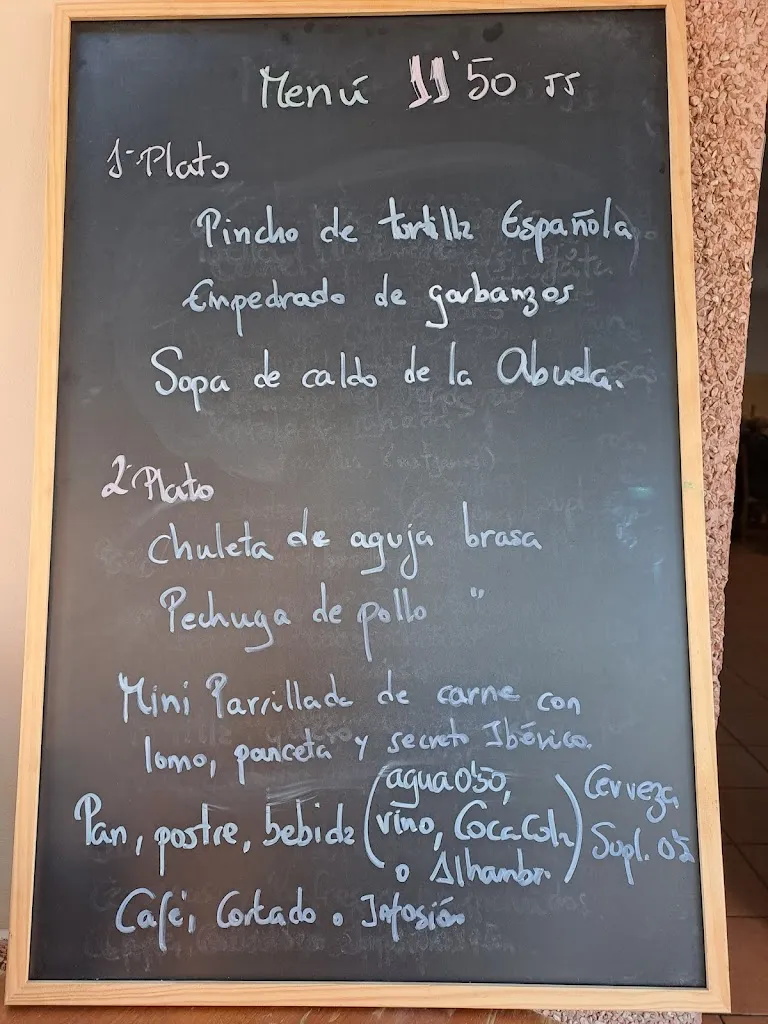 Menú 11'50
1º Plato
Pincho de tortilla Española
Empedrado de garbanzos
Sopa de caldo de la Abuela.
2º Plato
Chuleta de aguja brasa
Pechuga de pollo "
Mini Parrillada de carne con
lomo, panceta y secreto Ibérico.
Pan, postre, bebida (agua 0'50,
vino, CocaCola
o Alhambr.)
Cerveza
Supl.
Café, Cortado o Infosión